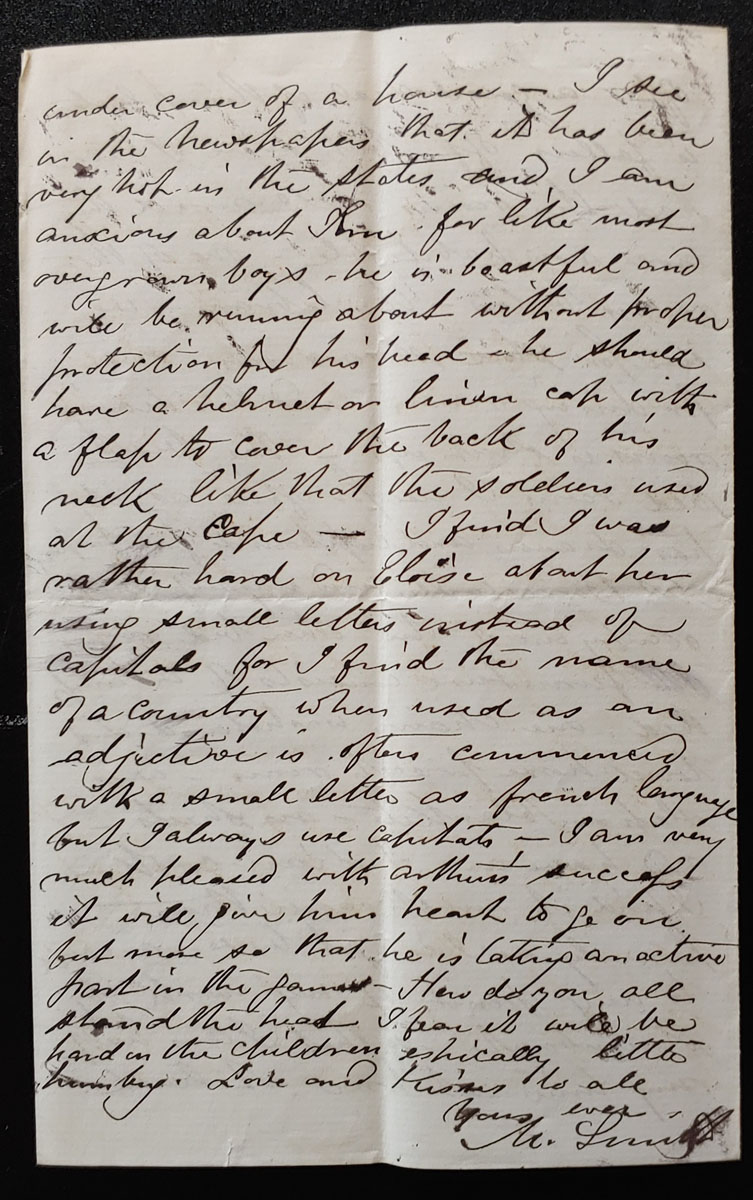 under cover of a house — I see
in the Newspapers that it has been
very hot in the states and I am
anxious about for like most
overgrown boys - he is boastful and
will be running about without proper
protection for his head - he should
have a helmet or linen cap with
a flap to cover the back of his
neck like that the soldiers used
at the Cape — I find I was
rather hard on Eloise about her
using small letters instead of
capitals for I find the name
of a country when used as an
adjective is often commenced
with a small letter as french language
but I always use capitals — I am very
much pleased with arthur's success
it will give him heart to go on
but more so that he is taking an active
part in the games - How do you all
stand the heat I fear it will be
hard on the children espically little
humbug. Love and Kisses to all
Yours ever
M. Smith